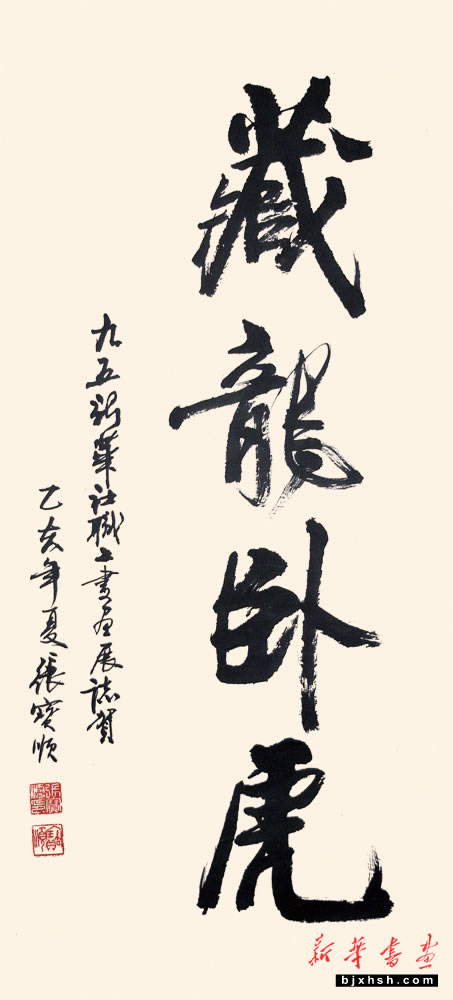 藏龍卧虎
九五新華社職工書画展誌賀
乙亥年夏張寶順
新華書画
bjxhsh.com